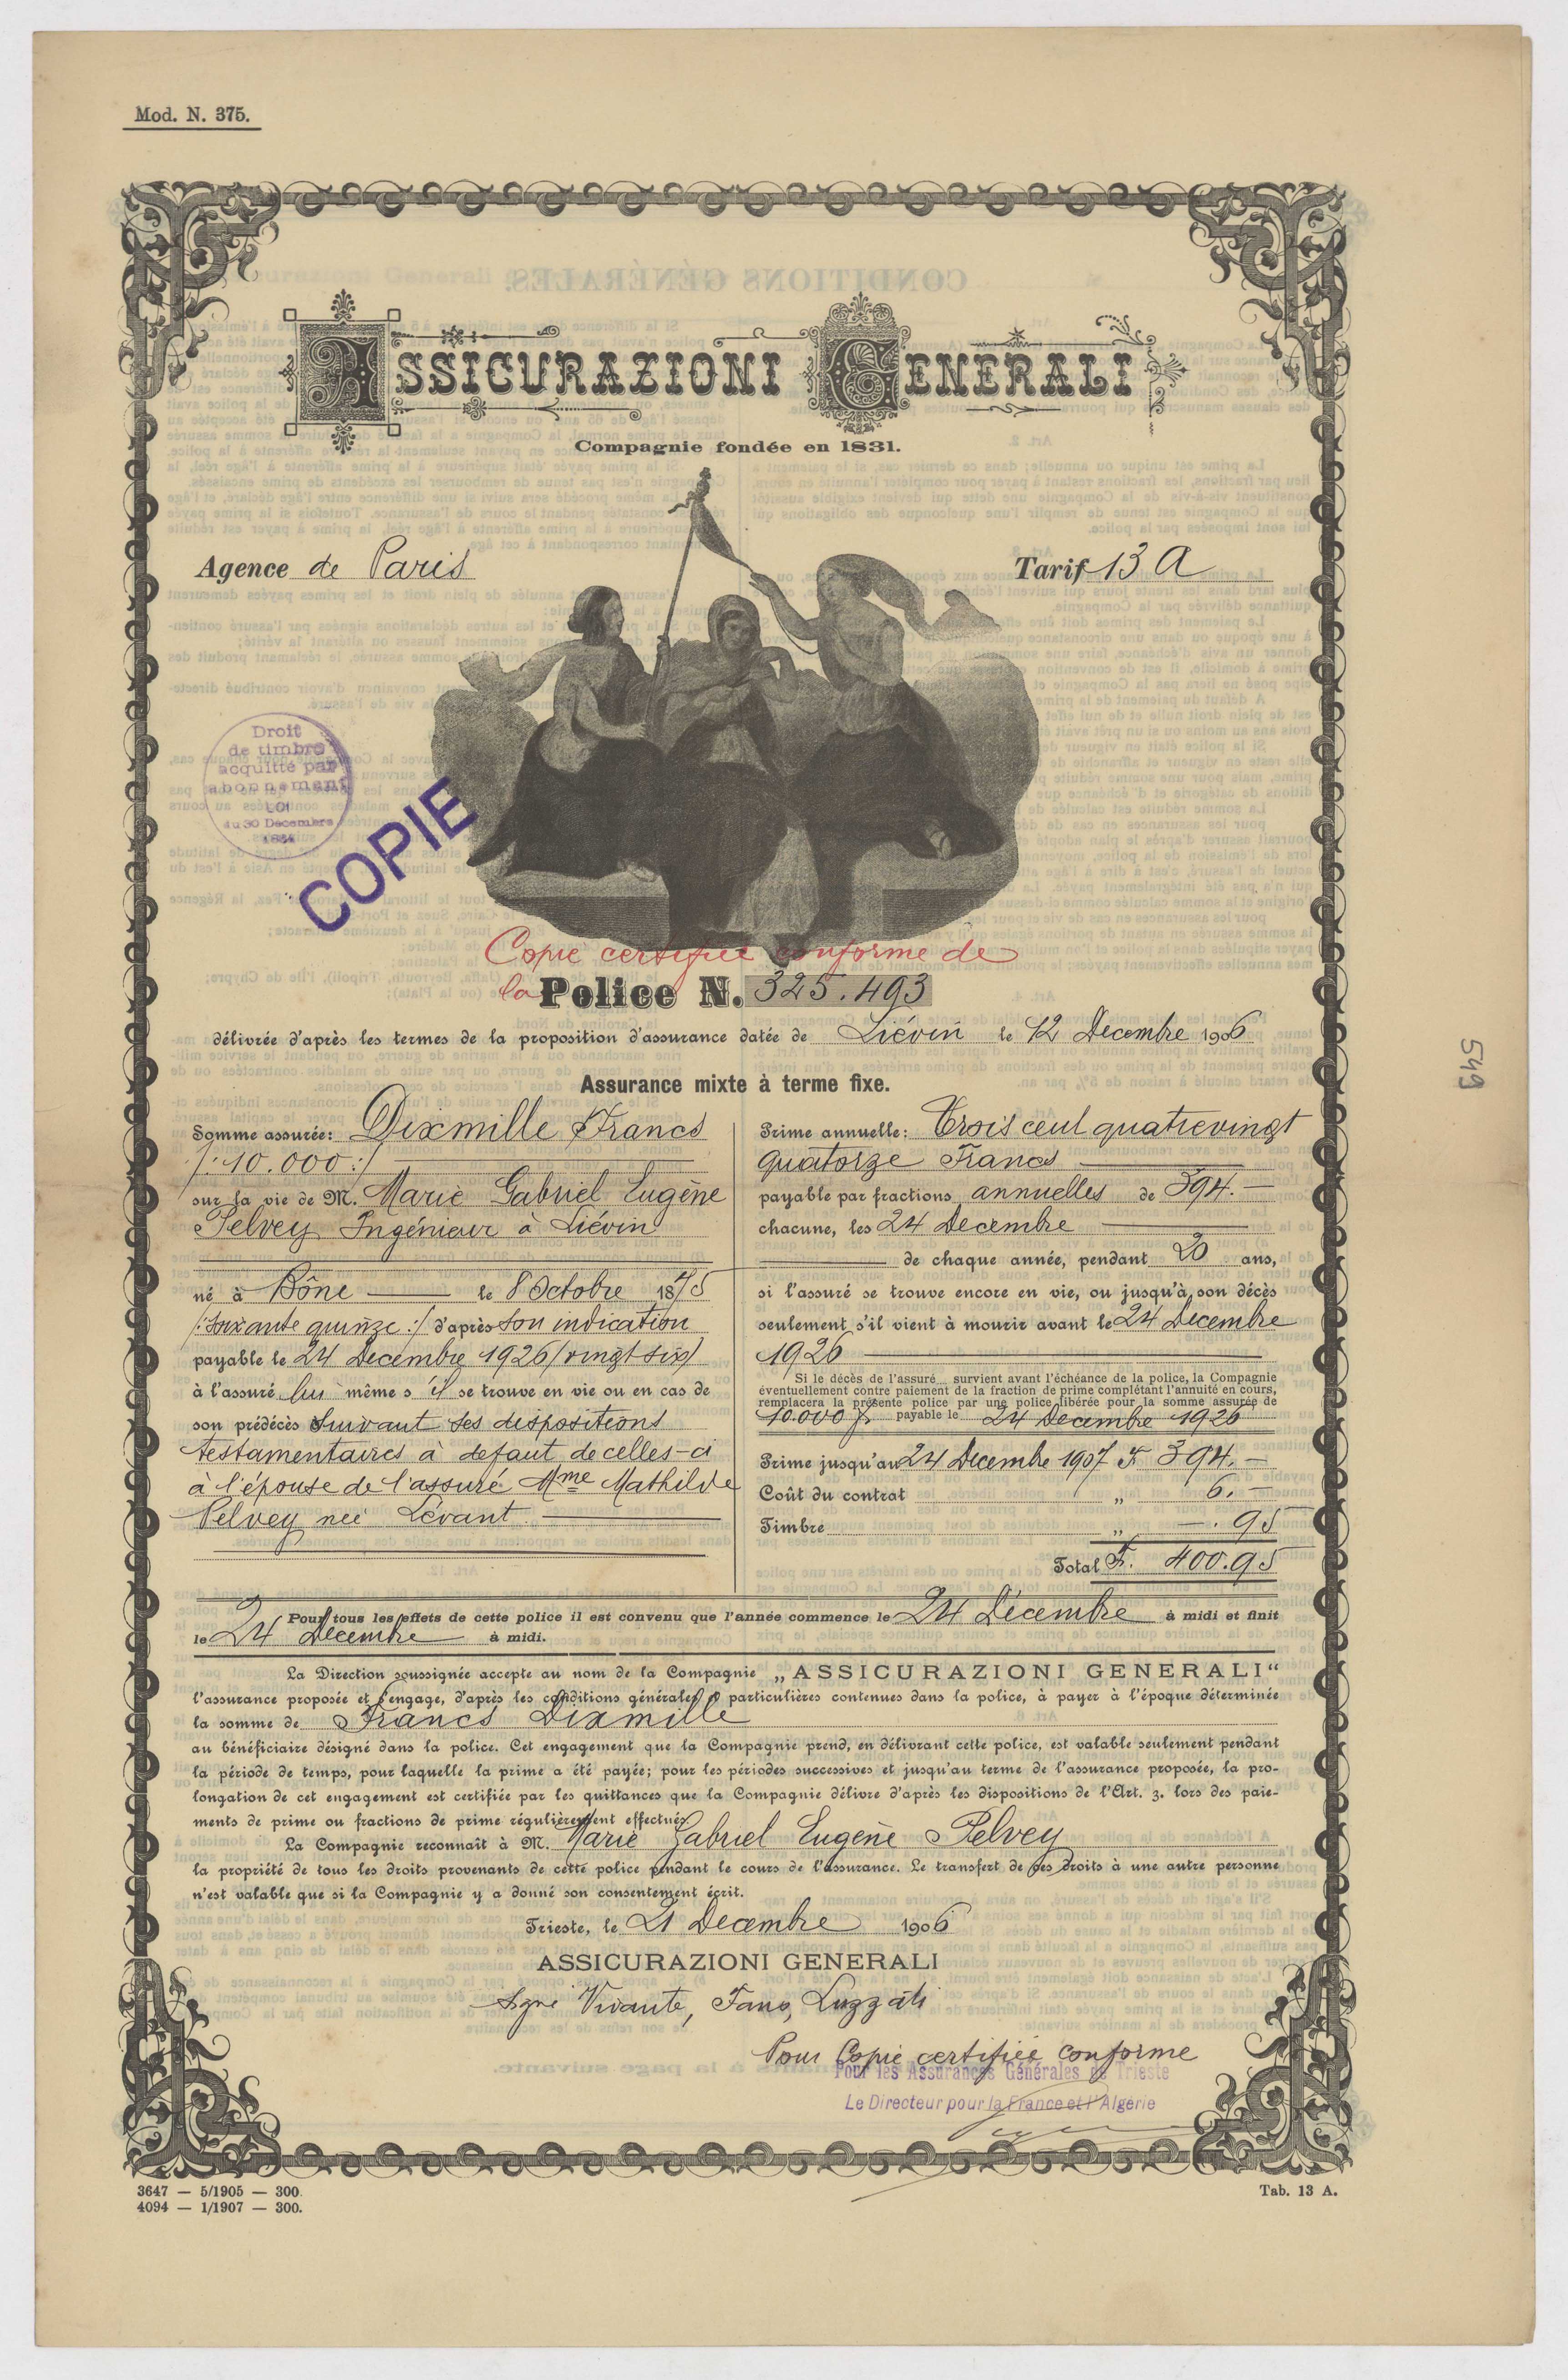 Mod. N. 375.
ASSICURAZIONI GENERALI
Compagnie fondée en 1831.
Agence de Paris
Tarif 13 A
Droit
de timbre
acquitté par
abonnement
LOI
du 30 Décembre
COPIE
Copie certifiée conforme de
la Police N. 325.493
délivrée d'après les termes de la proposition d'assurance datée de Liévin le 12 Decembre 1906
Assurance mixte à terme fixe.
Somme assurée: Dixmille Francs
/: 10.000 :/
sur la vie de M. Marie Gabriel Eugène
Pelvey Ingénieur à Liévin
né à Bône le 8 Octobre 1875
/: soixante quinze :/ d'après son indication
payable le 24 Decembre 1926 / vingt six /
à l'assuré lui même s'il se trouve en vie ou en cas de
son prédécès suivant ses dispositions
testamentaires à defaut de celles-ci
à l'épouse de l'assuré Mme Mathilde
Pelvey née Lévant
Prime annuelle: Trois cent quatrevingt
quatorze Francs
payable par fractions annuelles de 394.—
chacune, les 24 Decembre
de chaque année, pendant 20 ans,
si l'assuré se trouve encore en vie, ou jusqu'à son décès
seulement s'il vient à mourir avant le 24 Decembre
1926
Si le décès de l'assuré survient avant l'échéance de la police, la Compagnie
éventuellement contre paiement de la fraction de prime complétant l'annuité en cours,
remplacera la présente police par une police libérée pour la somme assurée de
10.000 f. payable le 24 Decembre 1926
Prime jusqu'au 24 Decembre 1907 F. 394.—
Coût du contrat „ 6.—
Timbre „ —.95
Total F. 400.95
Pour tous les effets de cette police il est convenu que l'année commence le 24 Décembre à midi et finit
le 24 Decembre à midi.
La Direction soussignée accepte au nom de la Compagnie „ASSICURAZIONI GENERALI“
l'assurance proposée et s'engage, d'après les conditions générales et particulières contenues dans la police, à payer à l'époque déterminée
la somme de Francs Dixmille
au bénéficiaire désigné dans la police. Cet engagement que la Compagnie prend, en délivrant cette police, est valable seulement pendant
la période de temps, pour laquelle la prime a été payée; pour les périodes successives et jusqu'au terme de l'assurance proposée, la pro-
longation de cet engagement est certifiée par les quittances que la Compagnie délivre d'après les dispositions de l'Art. 3. lors des paie-
ments de prime ou fractions de prime régulièrement effectués.
La Compagnie reconnaît à M. Marie Gabriel Eugène Pelvey
la propriété de tous les droits provenants de cette police pendant le cours de l'assurance. Le transfert de ces droits à une autre personne
n'est valable que si la Compagnie y a donné son consentement écrit.
Trieste, le 21 Decembre 1906
ASSICURAZIONI GENERALI
Signé Vivante, Fano, Luzzati
Pour Copie certifiée conforme
Pour les Assurances Générales de Trieste
Le Directeur pour la France et l'Algérie
3647 — 5/1905 — 300.
4094 — 1/1907 — 300.
Tab. 13 A.
549